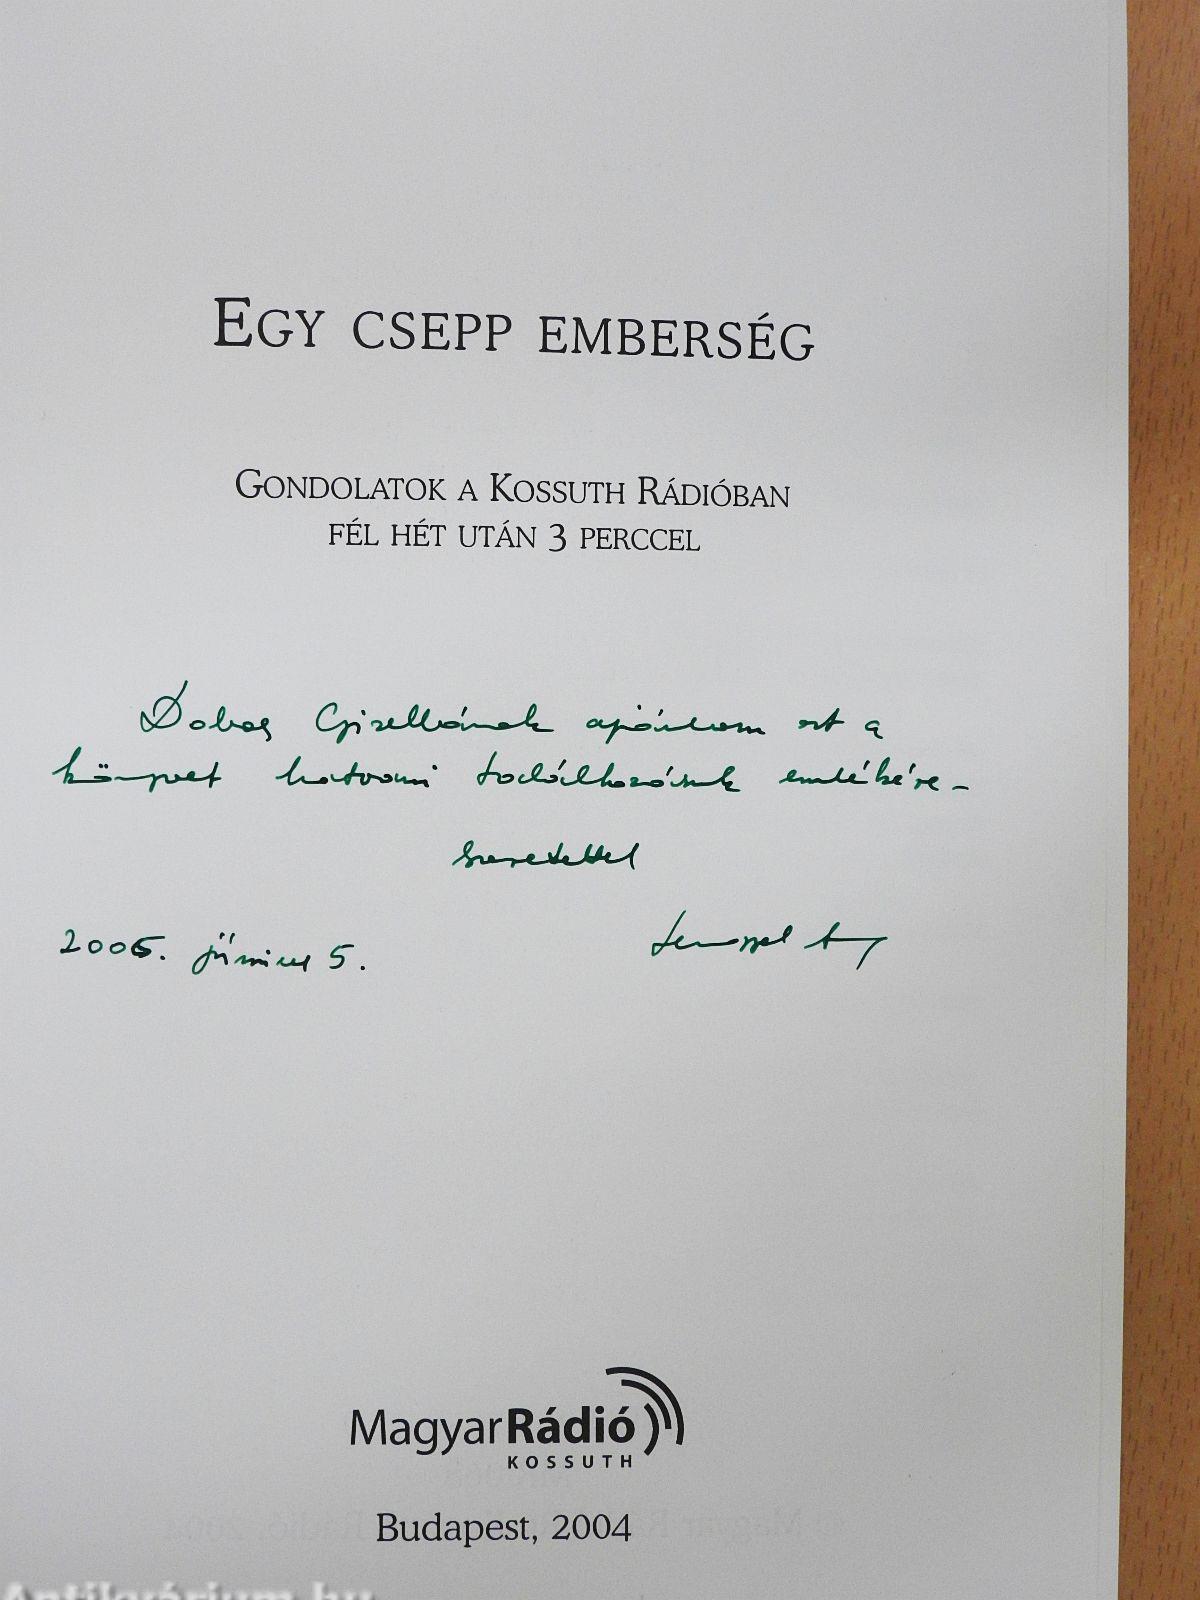 EGY CSEPP EMBERSÉG
GONDOLATOK A KOSSUTH RÁDIÓBAN
FÉL HÉT UTÁN 3 PERCCEL
Dobos Gizellának ajánlom ezt a
könyvet hatvani találkozásunk emlékére -
szeretettel
2006. június 5.
MagyarRádió
KOSSUTH
Budapest, 2004
Antikvárium.hu